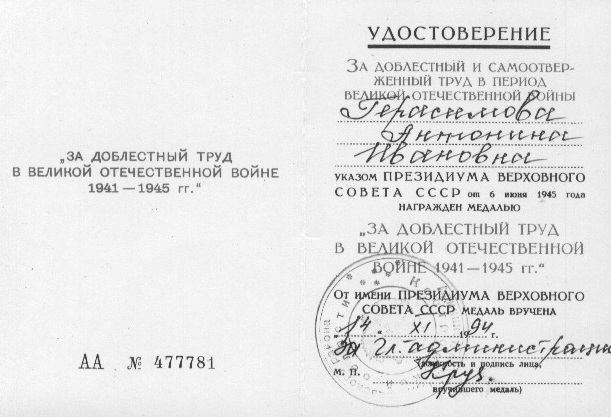 „ЗА ДОБЛЕСТНЫЙ ТРУД
В ВЕЛИКОЙ ОТЕЧЕСТВЕННОЙ ВОЙНЕ
1941—1945 гг.“
АА № 477781
УДОСТОВЕРЕНИЕ
ЗА ДОБЛЕСТНЫЙ И САМООТВЕР-
ЖЕННЫЙ ТРУД В ПЕРИОД
ВЕЛИКОЙ ОТЕЧЕСТВЕННОЙ ВОЙНЫ
Герасимова
Антонина
Ивановна
УКАЗОМ ПРЕЗИДИУМА ВЕРХОВНОГО
СОВЕТА СССР от 6 июня 1945 года
НАГРАЖДЕН МЕДАЛЬЮ
„ЗА ДОБЛЕСТНЫЙ ТРУД
В ВЕЛИКОЙ ОТЕЧЕСТВЕННОЙ
ВОЙНЕ 1941—1945 гг.“
От имени ПРЕЗИДИУМА ВЕРХОВНОГО
СОВЕТА СССР МЕДАЛЬ ВРУЧЕНА
14. XI 1994 г.
За Гл. администрации
М. П. (должность и подпись лица,
вручившего медаль)